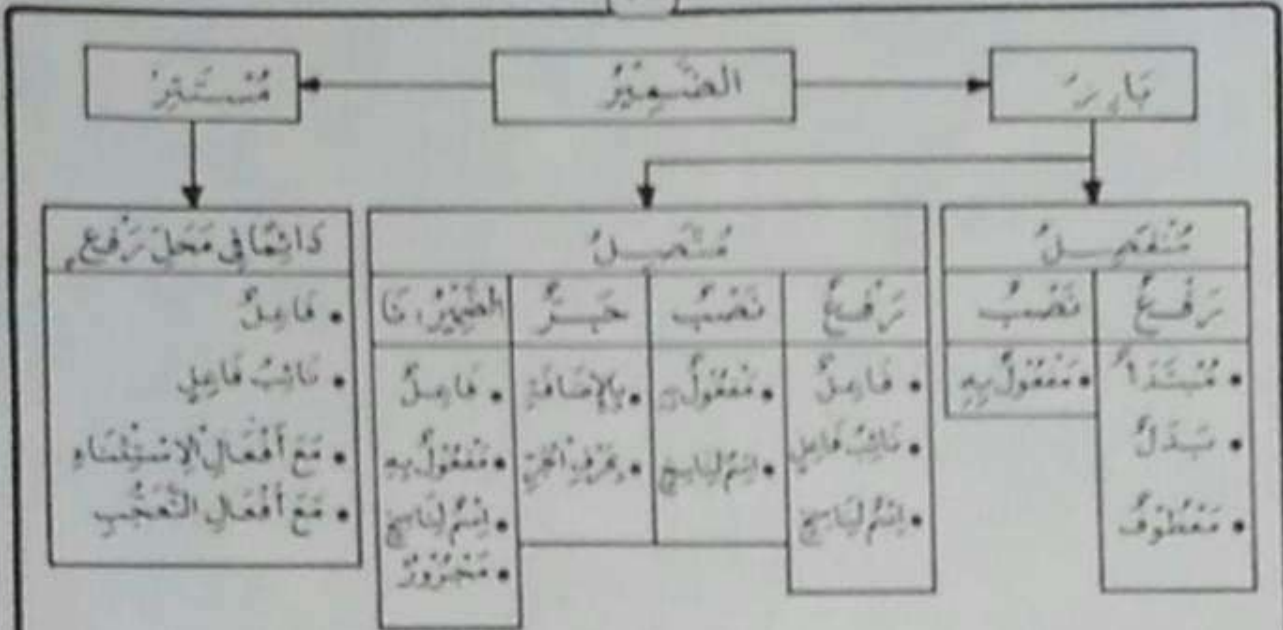 الضَّمِيرُ
بَارِزٌ
مُسْتَتِرٌ
مُنْفَصِلٌ
رَفْعٌ
مُبْتَدَأٌ
بَدَلٌ
مَعْطُوفٌ
نَصْبٌ
مَفْعُولٌ بِهِ
مُتَّصِلٌ
رَفْعٌ
فَاعِلٌ
نَائِبُ فَاعِلٍ
اِسْمٌ لِنَاسِخٍ
نَصْبٌ
مَفْعُولٌ بِهِ
اِسْمٌ لِنَاسِخٍ
جَرٌّ
بِالإِضَافَةِ
بِحَرْفِ الْجَرِّ
الضَّمِيرُ، نَا
فَاعِلٌ
مَفْعُولٌ بِهِ
اِسْمٌ لِنَاسِخٍ
مَجْرُورٌ
دَائِمًا فِي مَحَلِّ رَفْعٍ
فَاعِلٌ
نَائِبُ فَاعِلٍ
مَعَ أَفْعَالِ الِاسْتِثْنَاءِ
مَعَ أَفْعَالِ التَّعَجُّبِ